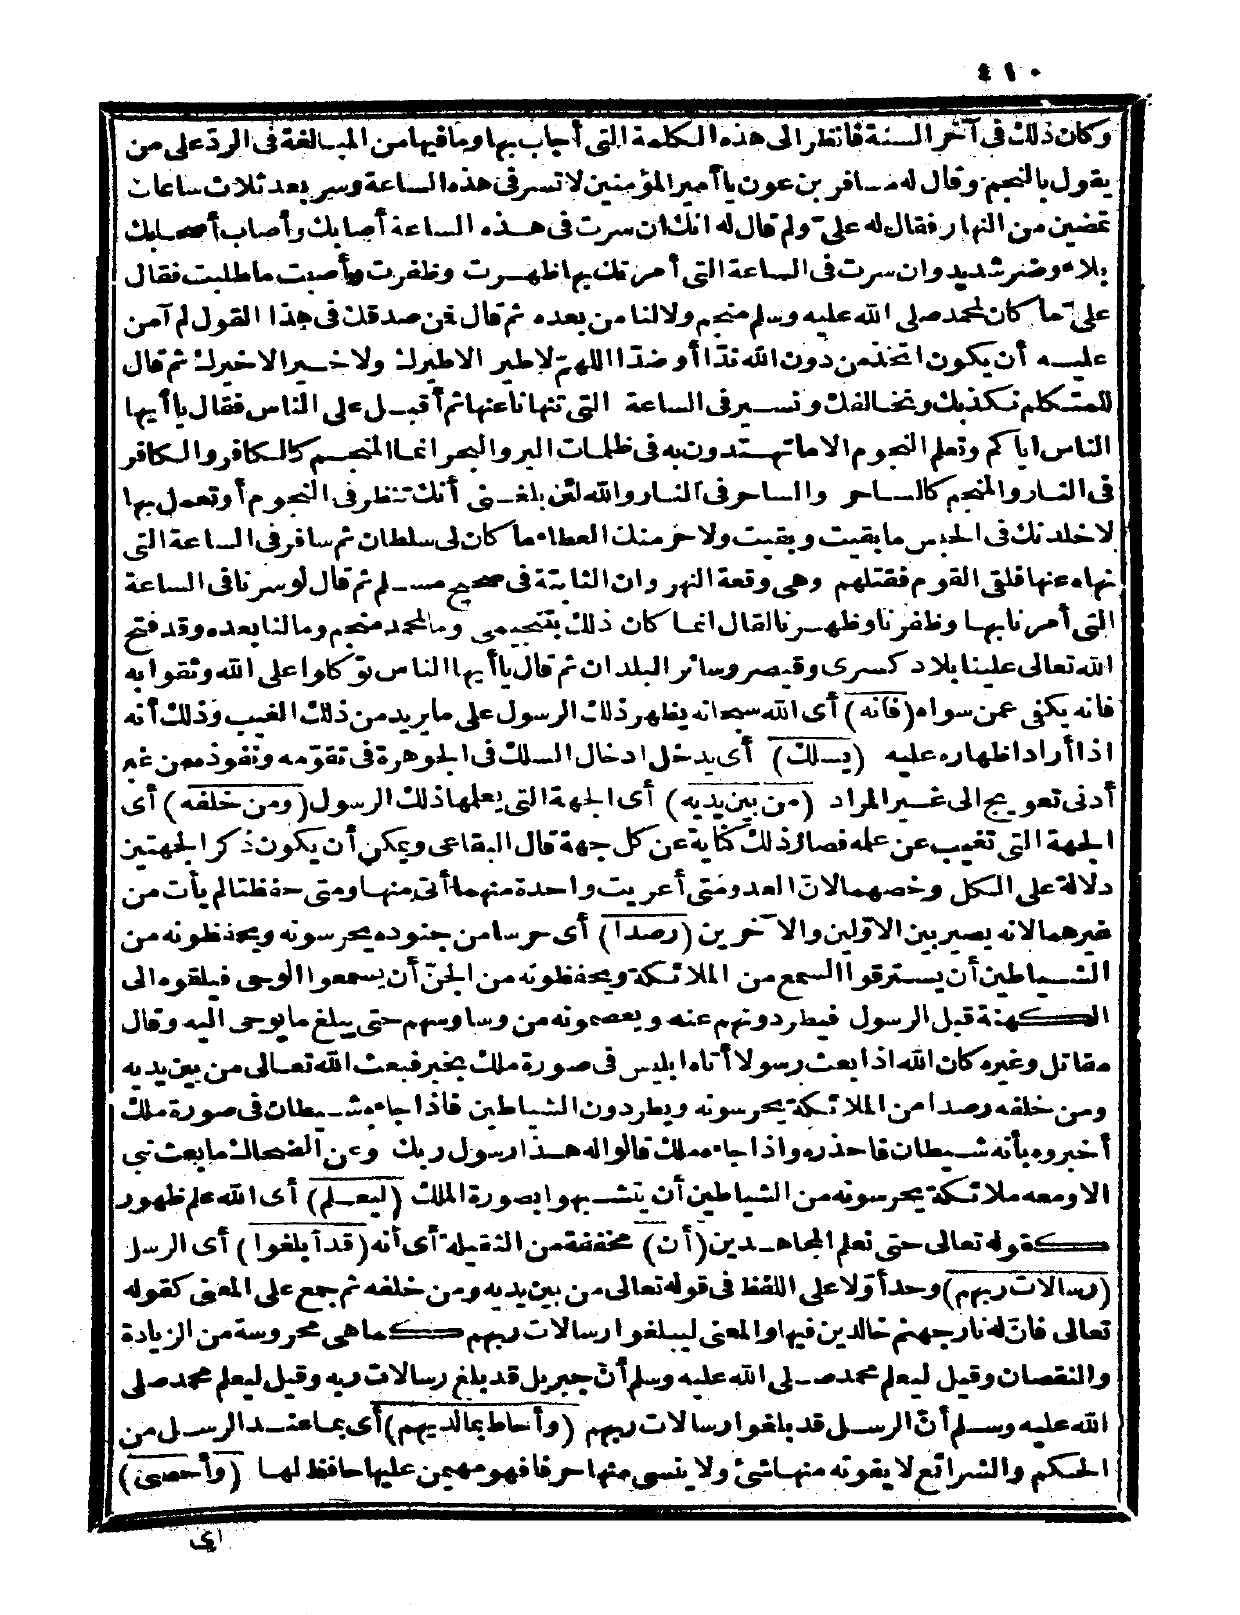 ٤١٠
وكان ذلك فى آخر السنة فانظر الى هذه الكلمة التى أجاب بها وما فيها من المبالغة فى الردّ على من
يقول بالنجم وقال له مسافر بن عون يا أمير المؤمنين لا تسر فى هذه الساعة وسر بعد ثلاث ساعات
تمضين من النهار فقال له علىّ ولم قال له انك ان سرت فى هذه الساعة أصابك وأصاب أصحابك
بلاء وضر شديد وان سرت فى الساعة التى أمرتك بها ظهرت وظفرت وأصبت ما طلبت فقال
علىّ ما كان لمحمد صلى الله عليه وسلم منجم ولا لنا من بعده ثم قال فمن صدقك فى هذا القول لم آمن
عليه أن يكون اتخذ من دون الله ندّا أو ضدّا اللهمّ لا طير الا طيرك ولا خير الا خيرك ثم قال
للمتكلم نكذبك ونخالفك ونسير فى الساعة التى تنهانا عنها ثم أقبل على الناس فقال يا أيها
الناس اياكم وتعلم النجوم الا ما تهتدون به فى ظلمات البر والبحر انما المنجم كالكافر والكافر
فى النار والمنجم كالساحر والساحر فى النار والله لئن بلغنى أنك تنظر فى النجوم أو تعمل بها
لاخلدنك فى الحبس ما بقيت وبقيت ولاحرمنك العطاء ما كان لى سلطان ثم سافر فى الساعة التى
نهاه عنها فلقى القوم فقتلهم وهى وقعة النهروان الثابتة فى صحيح مسلم ثم قال لو سرنا فى الساعة
التى أمرنا بها وظفرنا وظهرنا لقال انما كان ذلك بتنجيمى وما لمحمد منجم وما لنا بعده وقد فتح
الله تعالى علينا بلاد كسرى وقيصر وسائر البلدان ثم قال يا أيها الناس توكلوا على الله وثقوا به
فانه يكفى عمن سواه (فانه) أى الله سبحانه يظهر ذلك الرسول على ما يريد من ذلك الغيب وذلك أنه
اذا أراد اظهاره عليه (يسلك) أى يدخل ادخال السلك فى الجوهرة فى تقوّمه ونفوذه من غير
أدنى تعويج الى غير المراد (من بين يديه) أى الجهة التى يعلمها ذلك الرسول (ومن خلفه) أى
الجهة التى تغيب عن علمه فصار ذلك كناية عن كل جهة قال البقاعى ويمكن أن يكون ذكر الجهتين
دلالة على الكل وخصهما لانّ العدو متى أعريت واحدة منهما أتى منها ومتى حفظتا لم يأت من
غيرهما لانه يصير بين الاوّلين والآخرين (رصدا) أى حرسا من جنوده يحرسونه ويحفظونه من
الشياطين أن يسترقوا السمع من الملائكة ويحفظونه من الجنّ أن يسمعوا الوحى فيلقوه الى
الكهنة قبل الرسول فيطردونهم عنه ويعصمونه من وساوسهم حتى يبلغ ما يوحى اليه وقال
مقاتل وغيره كان الله اذا بعث رسولا أتاه ابليس فى صورة ملك يخبر فبعث الله تعالى من بين يديه
ومن خلفه رصدا من الملائكة يحرسونه ويطردون الشياطين فاذا جاءه شيطان فى صورة ملك
أخبروه بأنه شيطان فاحذره واذا جاءه ملك قالوا له هذا رسول ربك وعن الضحاك ما بعث نبى
الا ومعه ملائكة يحرسونه من الشياطين أن يتشبهوا بصورة الملك (ليعلم) أى الله علم ظهور
كقوله تعالى حتى نعلم المجاهدين (أن) مخففة من الثقيلة أى أنه (قد أبلغوا) أى الرسل
(رسالات ربهم) وحد أوّلا على اللفظ فى قوله تعالى من بين يديه ومن خلفه ثم جمع على المعنى كقوله
تعالى فانّ له نار جهنم خالدين فيها والمعنى ليبلغوا رسالات ربهم كما هى محروسة من الزيادة
والنقصان وقيل ليعلم محمد صلى الله عليه وسلم أنّ جبريل قد بلغ رسالات ربه وقيل ليعلم محمد صلى
الله عليه وسلم أنّ الرسل قد بلغوا رسالات ربهم (وأحاط بما لديهم) أى بما عند الرسل من
الحكم والشرائع لا يفوته منها شئ ولا ينسى منها حرفا فهو مهيمن عليها حافظ لها (وأحصى)
أى